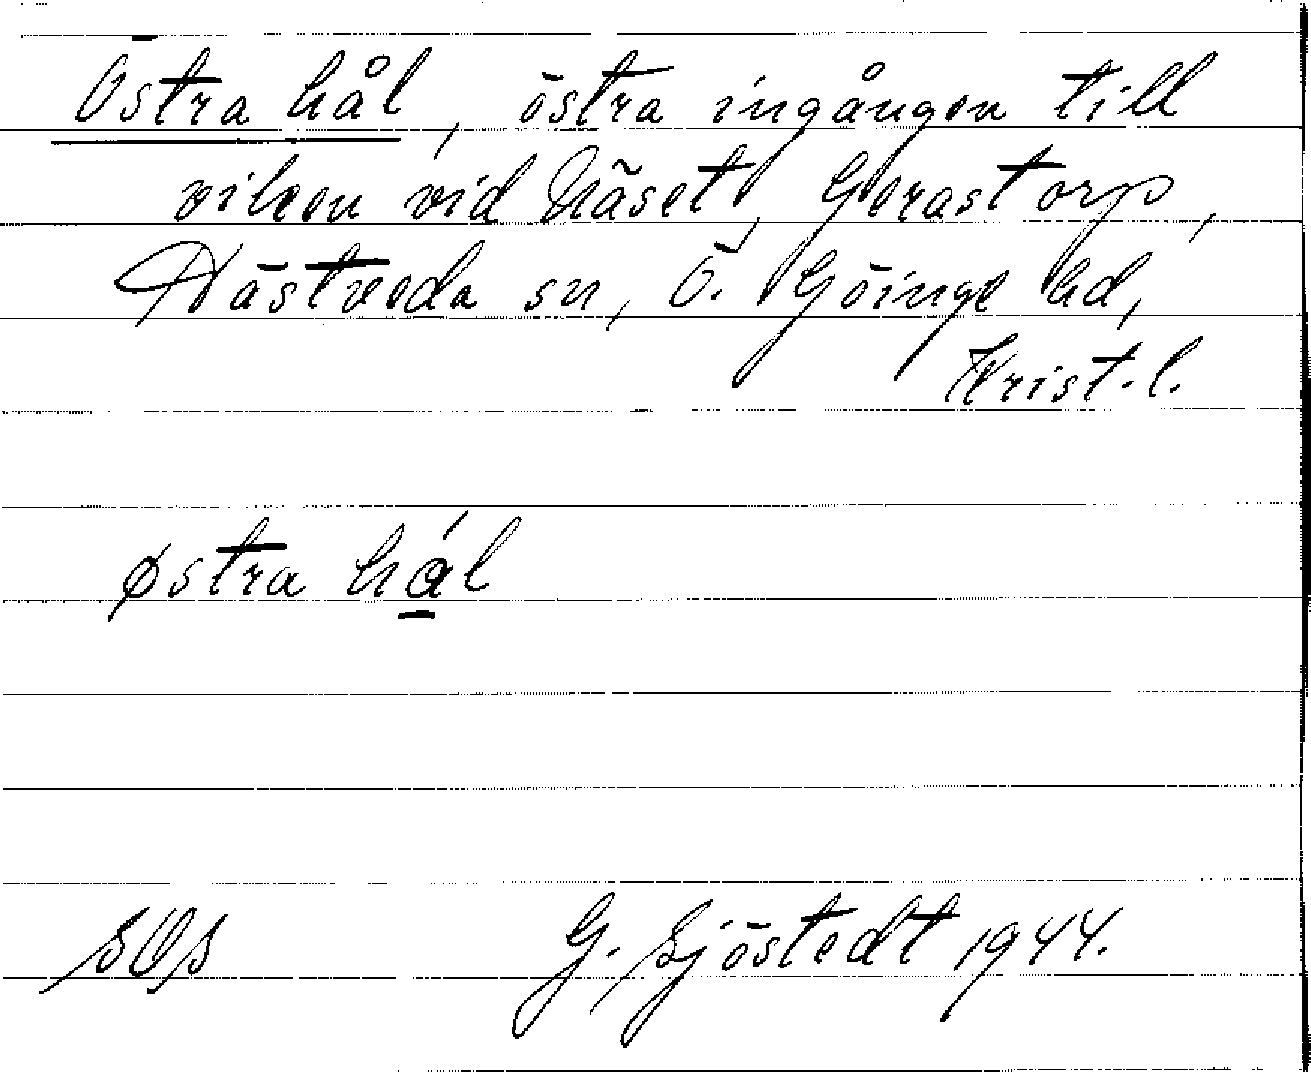 Östra hål, östra ingången till
viken vid Näset, Gerastorp,
Hästveda sn, Ö. Göinge hd,
Krist. l.
østra hál
SOS G. Sjöstedt 1944.